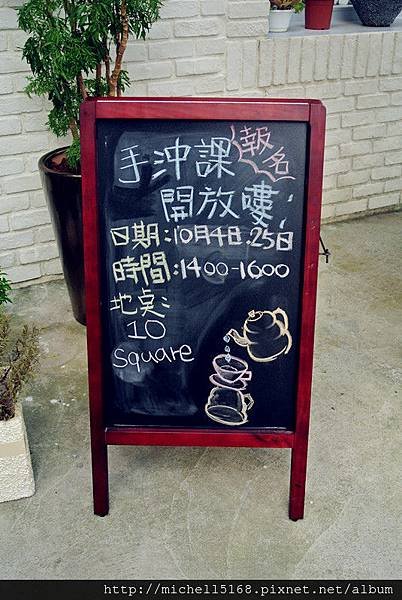 手沖課 報名
開放嘍!
日期:10月4日.25日
時間:1400-1600
地桌:
10
Square
http://michell5168.pixnet.net/album